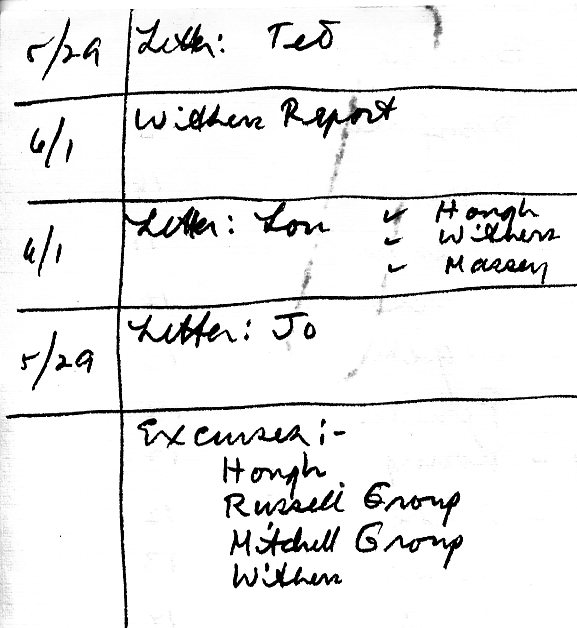 5/29 Letter: Ted
6/1 Withers Report
6/1 Letter: Lon ✓ Hough
✓ Withers
✓ Massey
5/29 Letter: Jo
Excuses:-
Hough
Russell Group
Mitchell Group
Withers